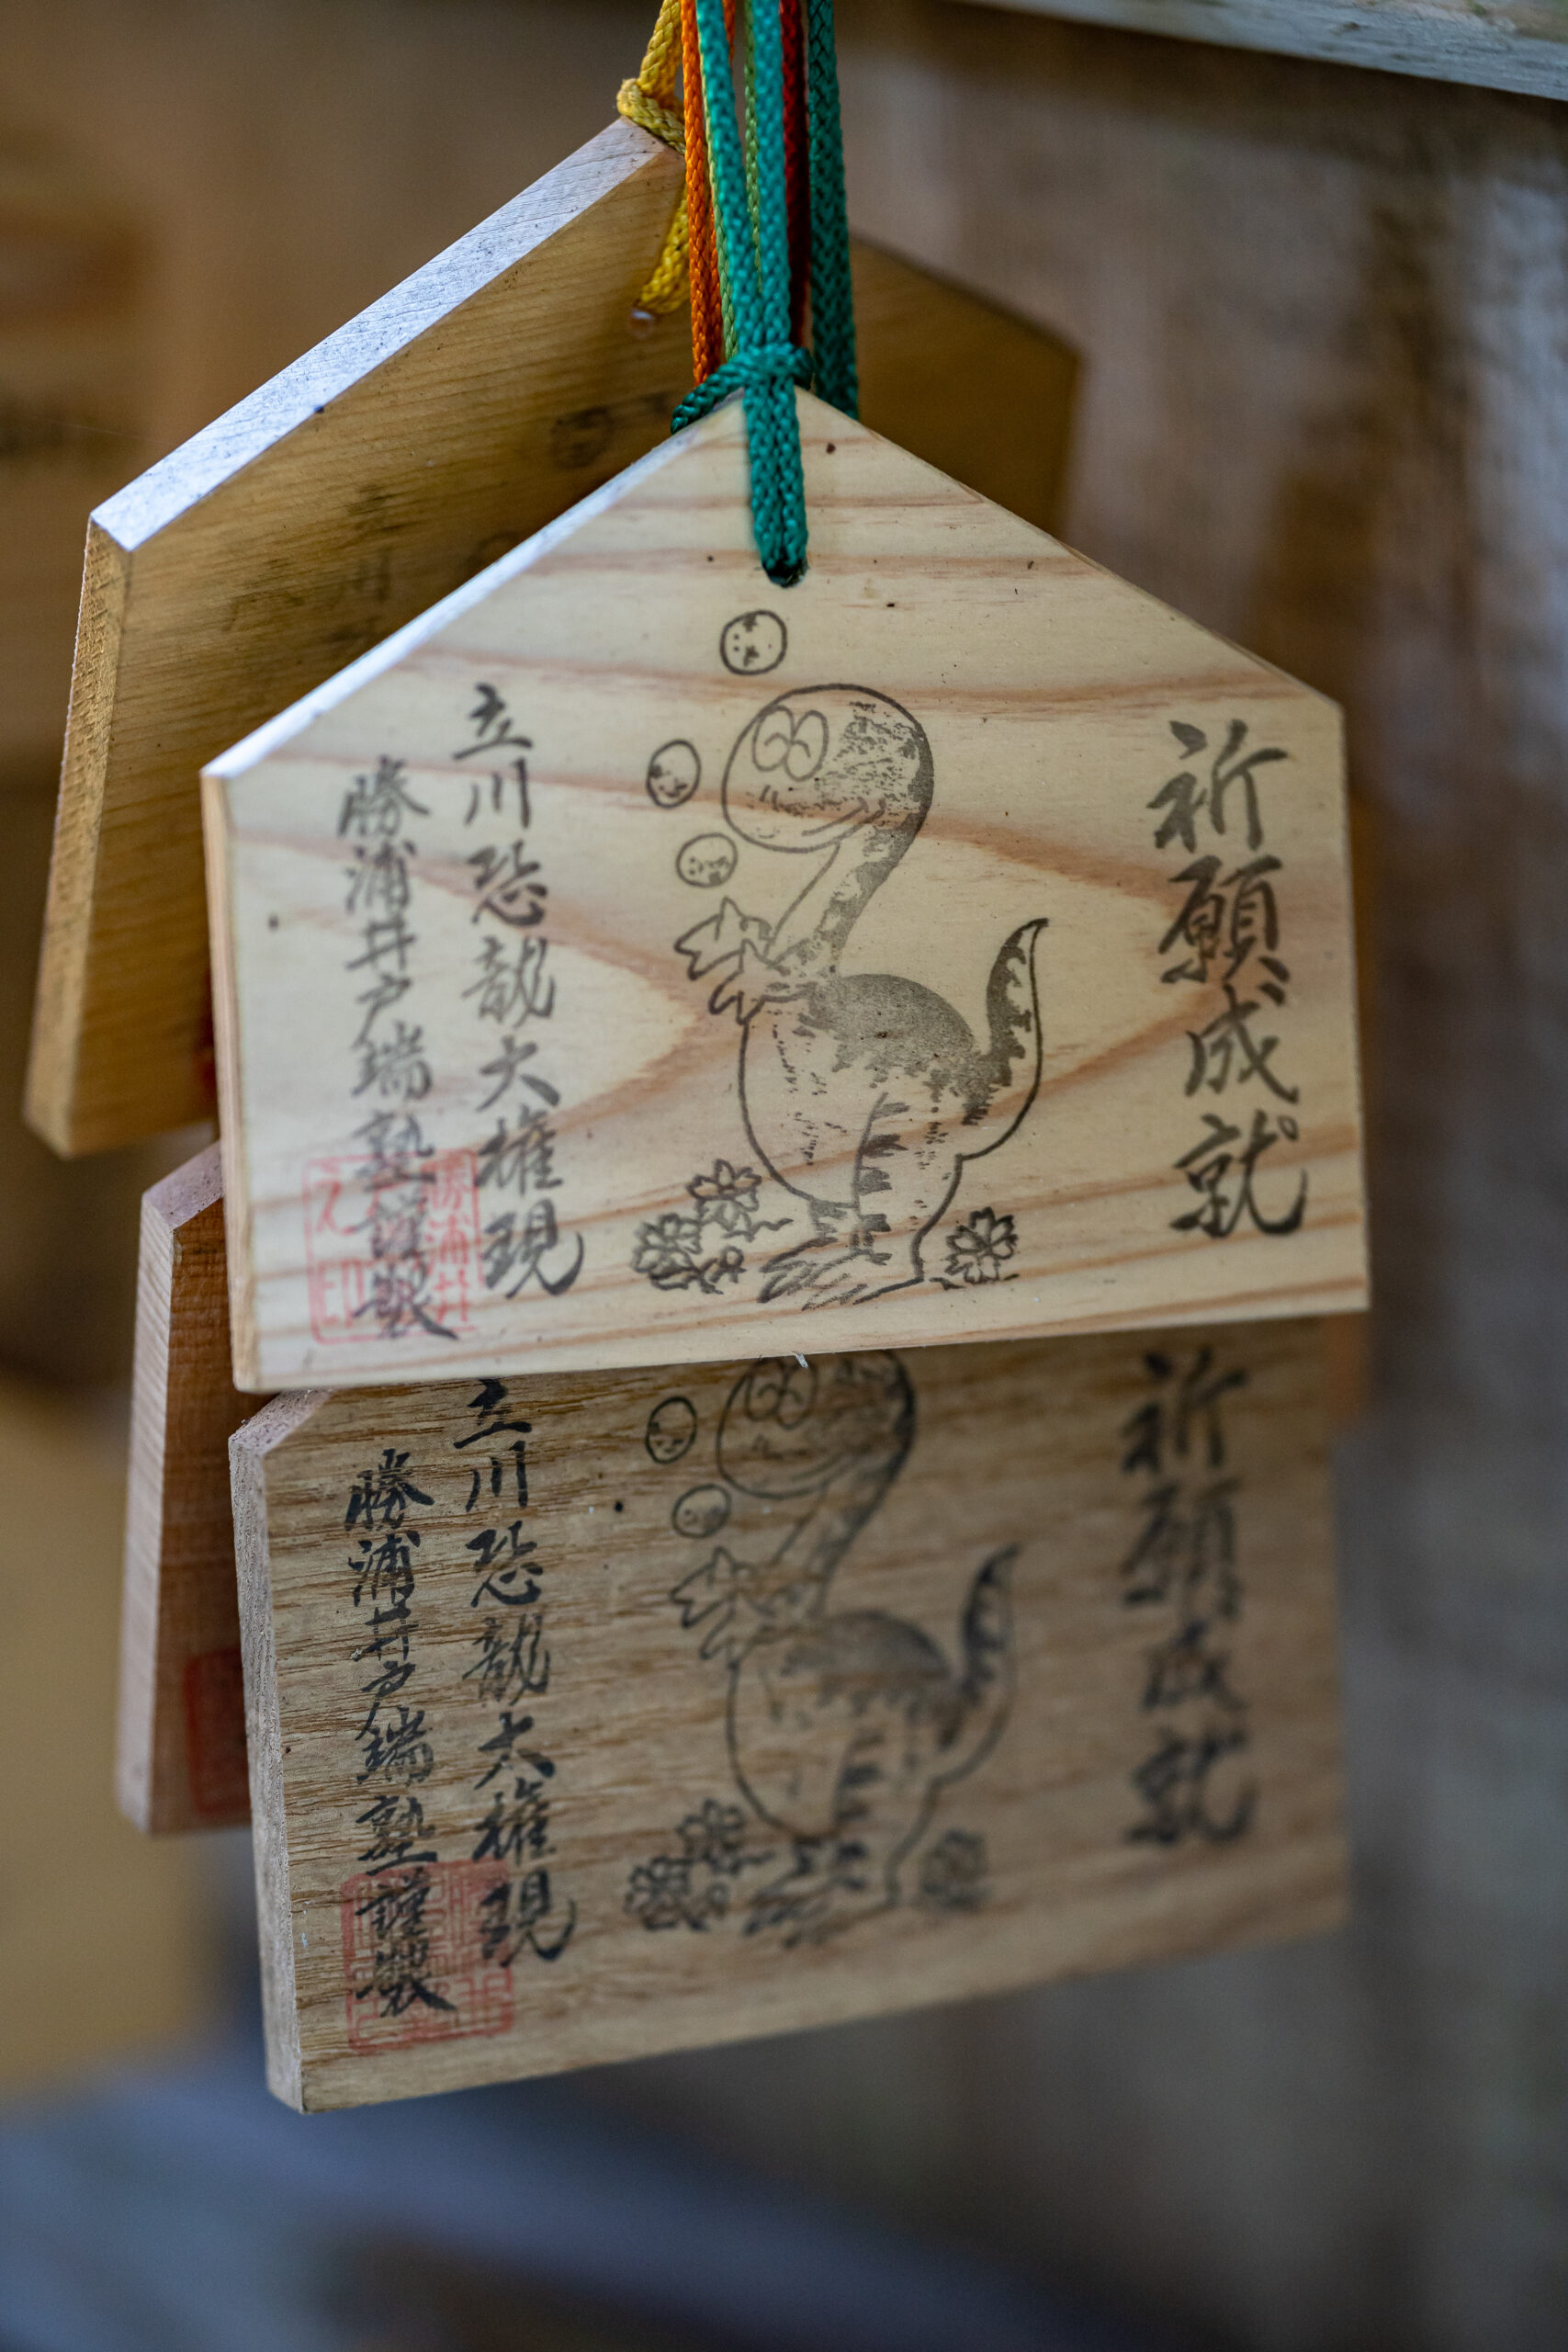 祈願成就
立川恐龍大権現
勝浦井戸端塾謹製
祈願成就
立川恐龍大権現
勝浦井戸端塾謹製